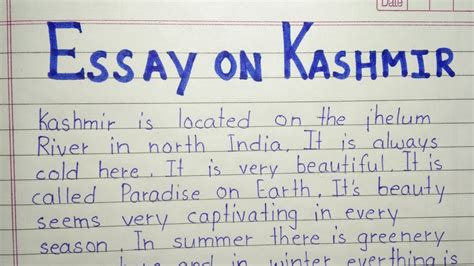 Date
ESSAY ON KASHMIR
Kashmir is located on the jhelum
River in north India. It is always
cold here. It is very beautiful. It is
called Paradise on Earth. It's beauty
seems very captivating in every
season. In summer there is greenery
and in winter everthing is